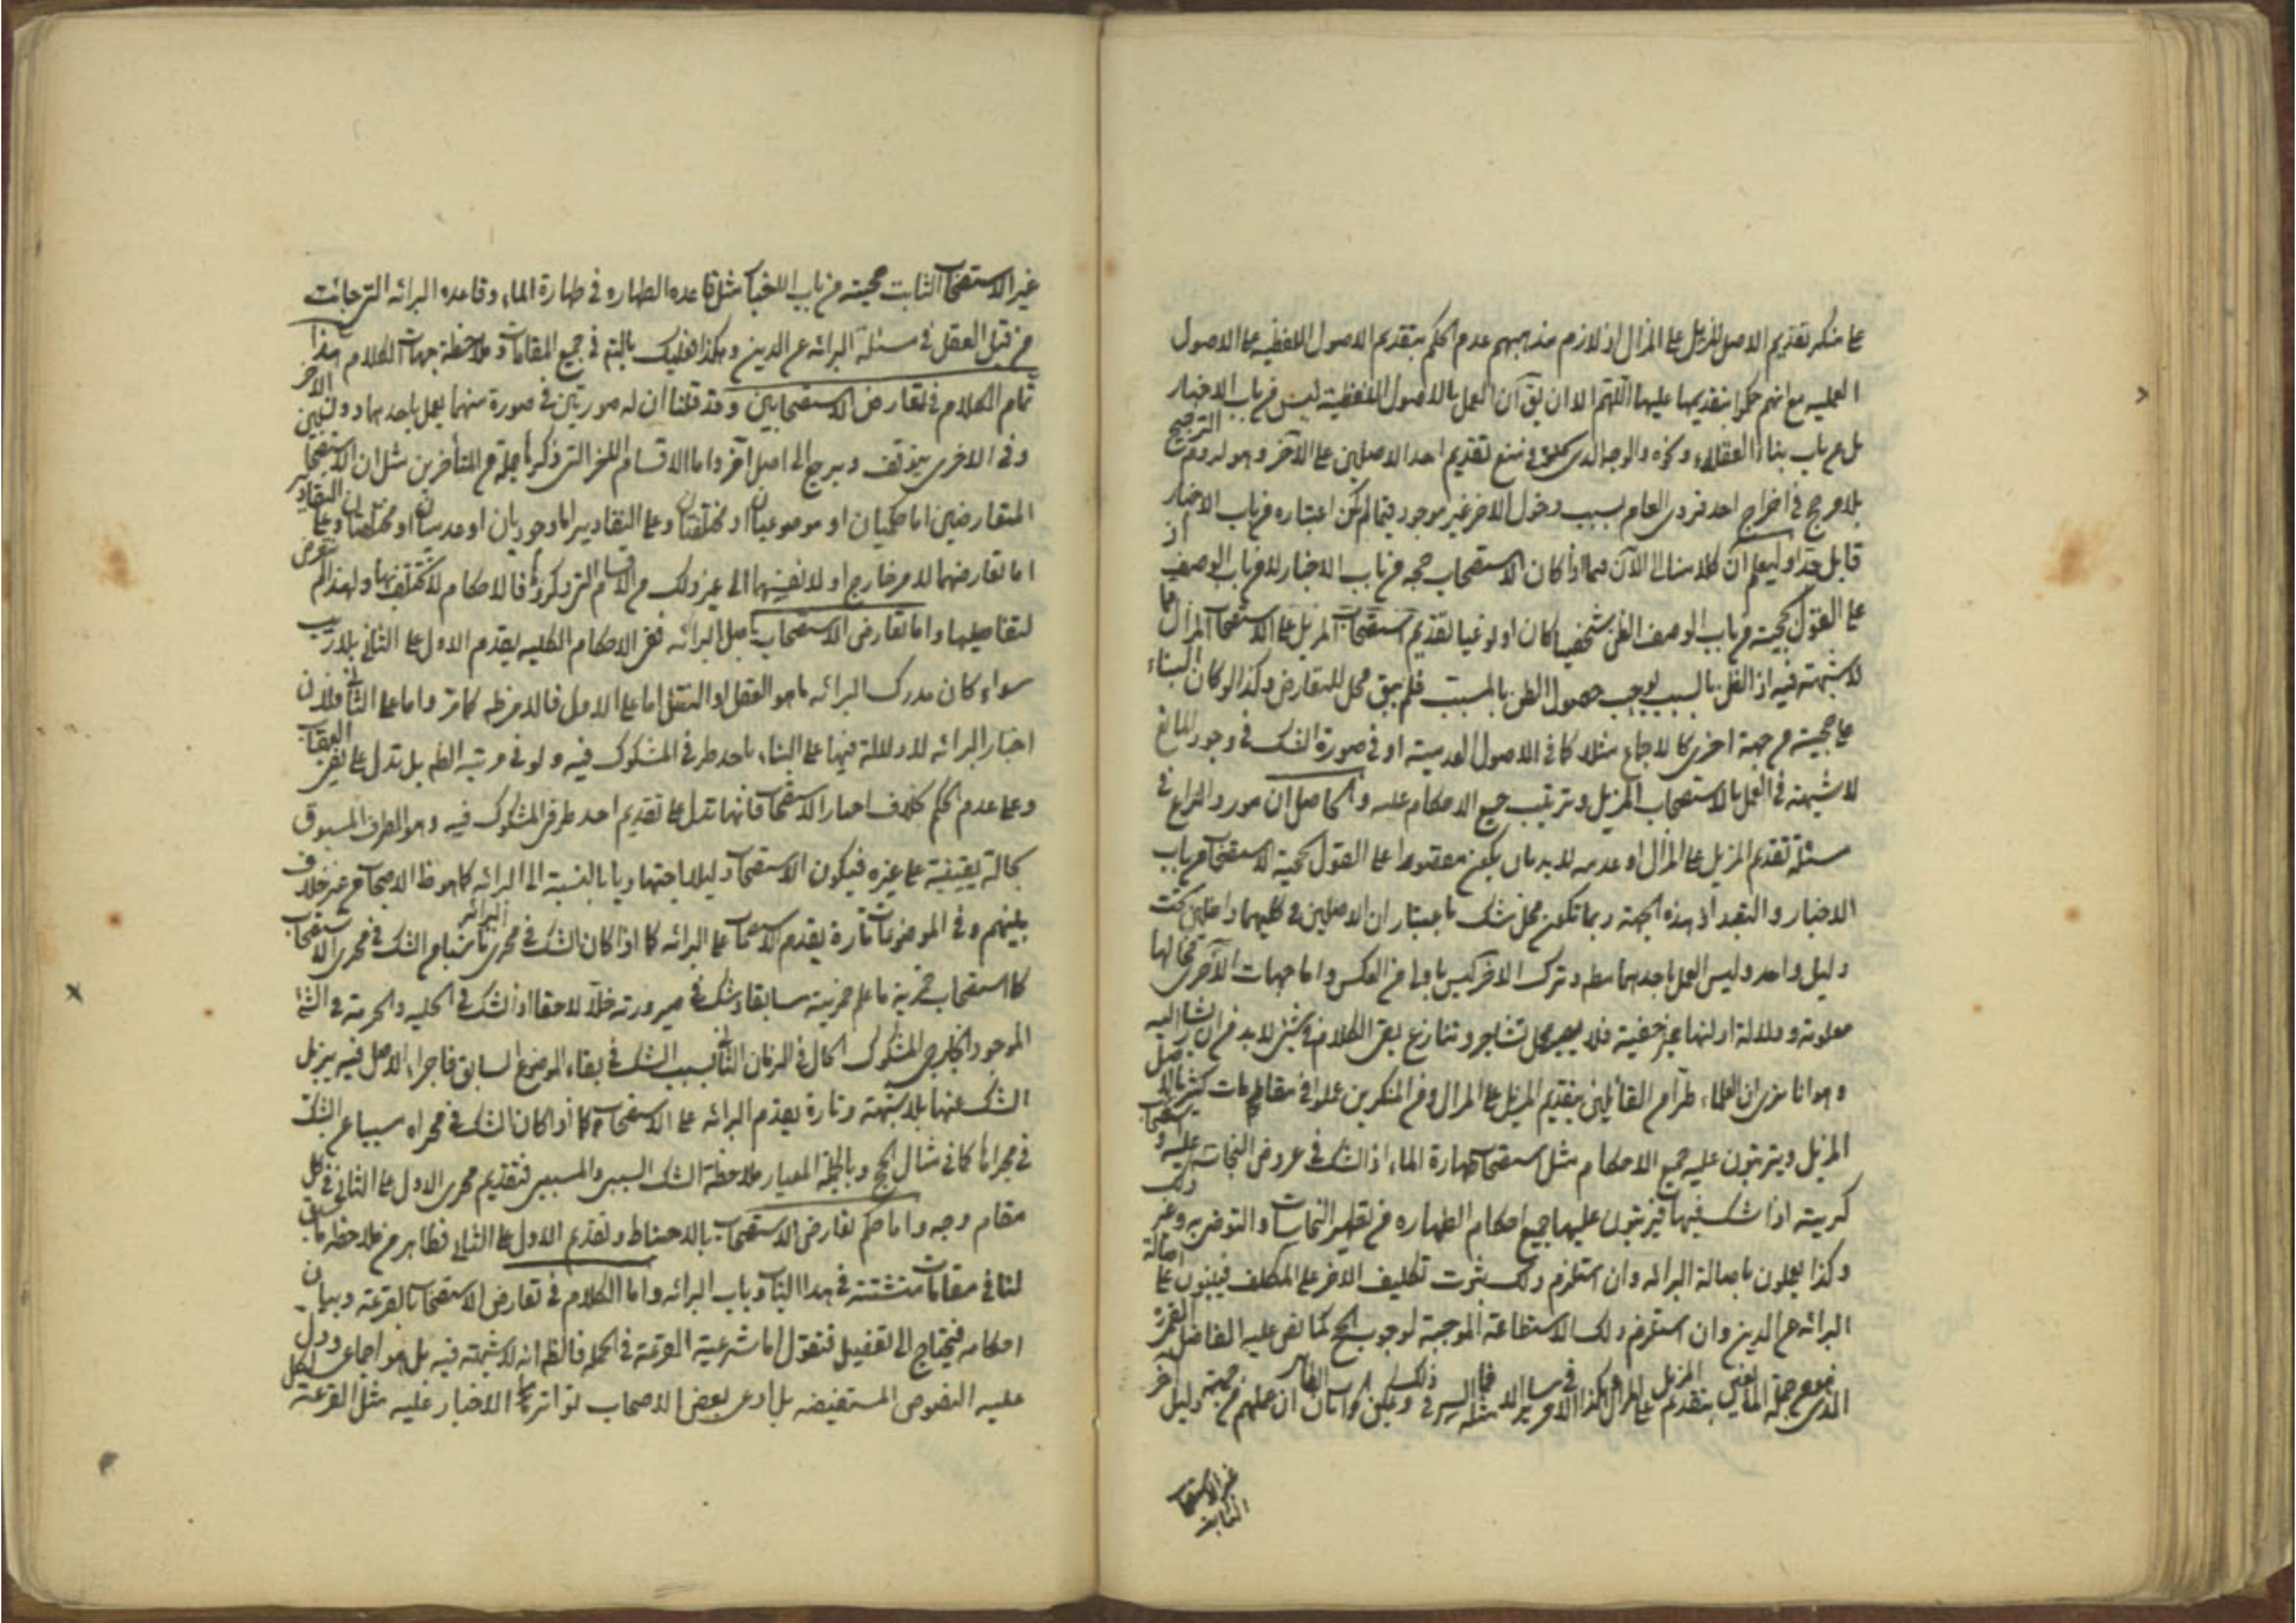 على منكر تقديم الاصل المزيل على المزال اذ لازم مذهبهم عدم الحكم بتقديم الاصول اللفظيه على الاصول
العمليه مع انهم حكموا بتقديمها عليها اللهم الا ان يق ان العمل بالاصول اللفظية ليس من باب الاخبار
بل من باب بناء العقلاء ونحوه والوجه الذى فى منع تقديم احد الاصلين على الآخر وهو لزوم الترجيح
بلا مرجح فى اخراج احد فردى العام بسبب دخول الاخر غير موجود فيما لم يكن اعتباره من باب الاخبار
قابل جدا وليعلم ان كلامنا الى الآن فيما اذا كان الاستصحاب حجه من باب الاخبار لا من باب الوصف اذ
على القول بحجيته من باب الوصف الظنى شخصيا كان او نوعيا تقديم استصحاب المزيل على الاستصحاب المزال مما
لا شبهة فيه اذ الظن بالسبب يوجب حصول الظن بالمسبب فلم يبق محل للتعارض وكذا لو كان البناء
على حجيته من جهة اخرى كالاجماع مثلا كما فى الاصول العدمية او فى صورة الشك فى وجود المانع
لا شبهة فى العمل بالاستصحاب المزيل وترتيب جميع الاحكام عليه والحاصل ان مورد النزاع فى
مسئلة تقديم المزيل على المزال او عدمه لا بد بان يكون مقصورا على القول بحجية الاستصحاب من باب
الاخبار والتعبد اذ بهذه الجهة ربما تكون محل شك باعتبار ان الاصلين كليهما داخلين تحت
دليل واحد وليس العمل باحدهما وترك الاخر ليس باولى من العكس واما جهات الاخرى فحالها
معلومة ودلالة ادلتها غير خفية فلا يصير محل تشاجر وتنازع بقى الكلام فى شئ لا بد من ان يشار اليه
وهو انا نرى ان العلماء طرا من القائلين بتقديم المزيل على المزال ومن المنكرين عملوا فى مقامات كثيرة بالاصل
المزيل ويترتبون عليه جميع الاحكام مثل استصحاب طهارة الماء اذ الشك فى عروض النجاسة عليه واستصحاب
كريته اذا شك فيها فيترتبون عليها جميع احكام الطهاره من تطهير النجاسات والتوضى به وغير ذلك
وكذا يعملون باصالة البرائه وان استلزم ذلك ثبوت تكليف الاخر على المكلف فيبنون على اصالة
البرائه عن الدين وان استلزم ذلك الاستطاعة الموجبة لوجوب الحج كما نص عليه الفاضل القمى
الذى هو من جملة المانعين بتقديم المزيل على المزال وهكذا الامر فى ساير الامثله فما السر فى ذلك ويمكن الجواب بان الظاهر ان عملهم من جهة دليل آخر
غير الاستصحاب
الثابت
غير الاستصحاب الثابت حجيته من باب الاخبار مثل قاعده الطهاره فى طهارة الماء وقاعده البرائه التى جائت
من قبل العقل فى مسئلة البرائه عن الدين وهكذا فعليك بالتتبع فى جميع المقامات وملاحظة جهات الكلام هذا
تمام الكلام فى تعارض الاستصحابين وقد قلنا ان له صورتين فى صورة منهما يعمل باحدهما دون الآخر
وفى الاخرى يتوقف ويرجع الى اصل آخر واما الاقسام الاخر التى ذكرها جملة من المتأخرين مثل ان الاستصحابين
المتعارضين اما حكميان او موضوعيان او مختلفان وعلى التقادير اما وجوديان او عدميان او مختلفان وعلى التقادير
اما تعارضهما لامر خارج او لانفسهما الى غير ذلك من الاقسام التى ذكروها فالاحكام لا تختلف فيها ولهذا لم نتعرض
لتفاصيلها واما تعارض الاستصحاب باصل البرائه ففى الاحكام الكليه يقدم الاول على الثانى بلا ريب
سواء كان مدرك البرائه هو العقل او النقل اما على الاول فالامر ظه كما مر واما على الثانى فلان
اخبار البرائه لا دلالة فيها على البناء باحد طرفى المشكوك فيه ولو فى مرتبة الظم بل تدل على نفى العقاب
وعلى عدم الحكم بخلاف اخبار الاستصحاب فانها تدل على تقديم احد طرفى المشكوك فيه وهو الطرف المسبوق
بحالة يقينية على غيره فيكون الاستصحاب دليلا اجتهاديا بالنسبة الى البرائه كما هو ظ الاصحاب من غير خلاف
بينهم وفى الموضوعات تارة يقدم الاستصحاب على البرائه كما اذا كان الشك فى مجرى البرائه ناشيا من الشك فى مجرى الاستصحاب
كاستصحاب خمرية ما علم خمريته سابقا وشك فى صيرورته خلا لاحقا اذ الشك فى الحليه والحرمة فى الشئ
الموجود الخارجى المشكوك الحال فى الزمان الثانى بسبب الشك فى بقاء الموضوع السابق فاجراء الاصل فيه يزيل
الشك عنها بلا شبهة وتارة يقدم البرائه على الاستصحاب كما اذا كان الشك فى مجراه سببا عن الشك
فى مجراها كما فى مثال الحج وبالجملة المعيار ملاحظة الشك السببى والمسببى فتقديم مجرى الاول على الثانى فى كل
مقام وجه واما حكم تعارض الاستصحاب بالاحتياط وتقديم الاول على الثانى فظاهر من ملاحظة ما سبق
لنا فى مقامات متشتتة فى هذا الباب وباب البرائه واما الكلام فى تعارض الاستصحاب بالقرعة وبيان
احكامه فيحتاج الى تفصيل فنقول اما شرعية القرعة فى الجمله فالظ انه لا شبهة فيه بل هو اجماعى ودل
عليه النصوص المستفيضه بل ادعى بعض الاصحاب تواترها الاخبار عليه مثل القرعة لكل